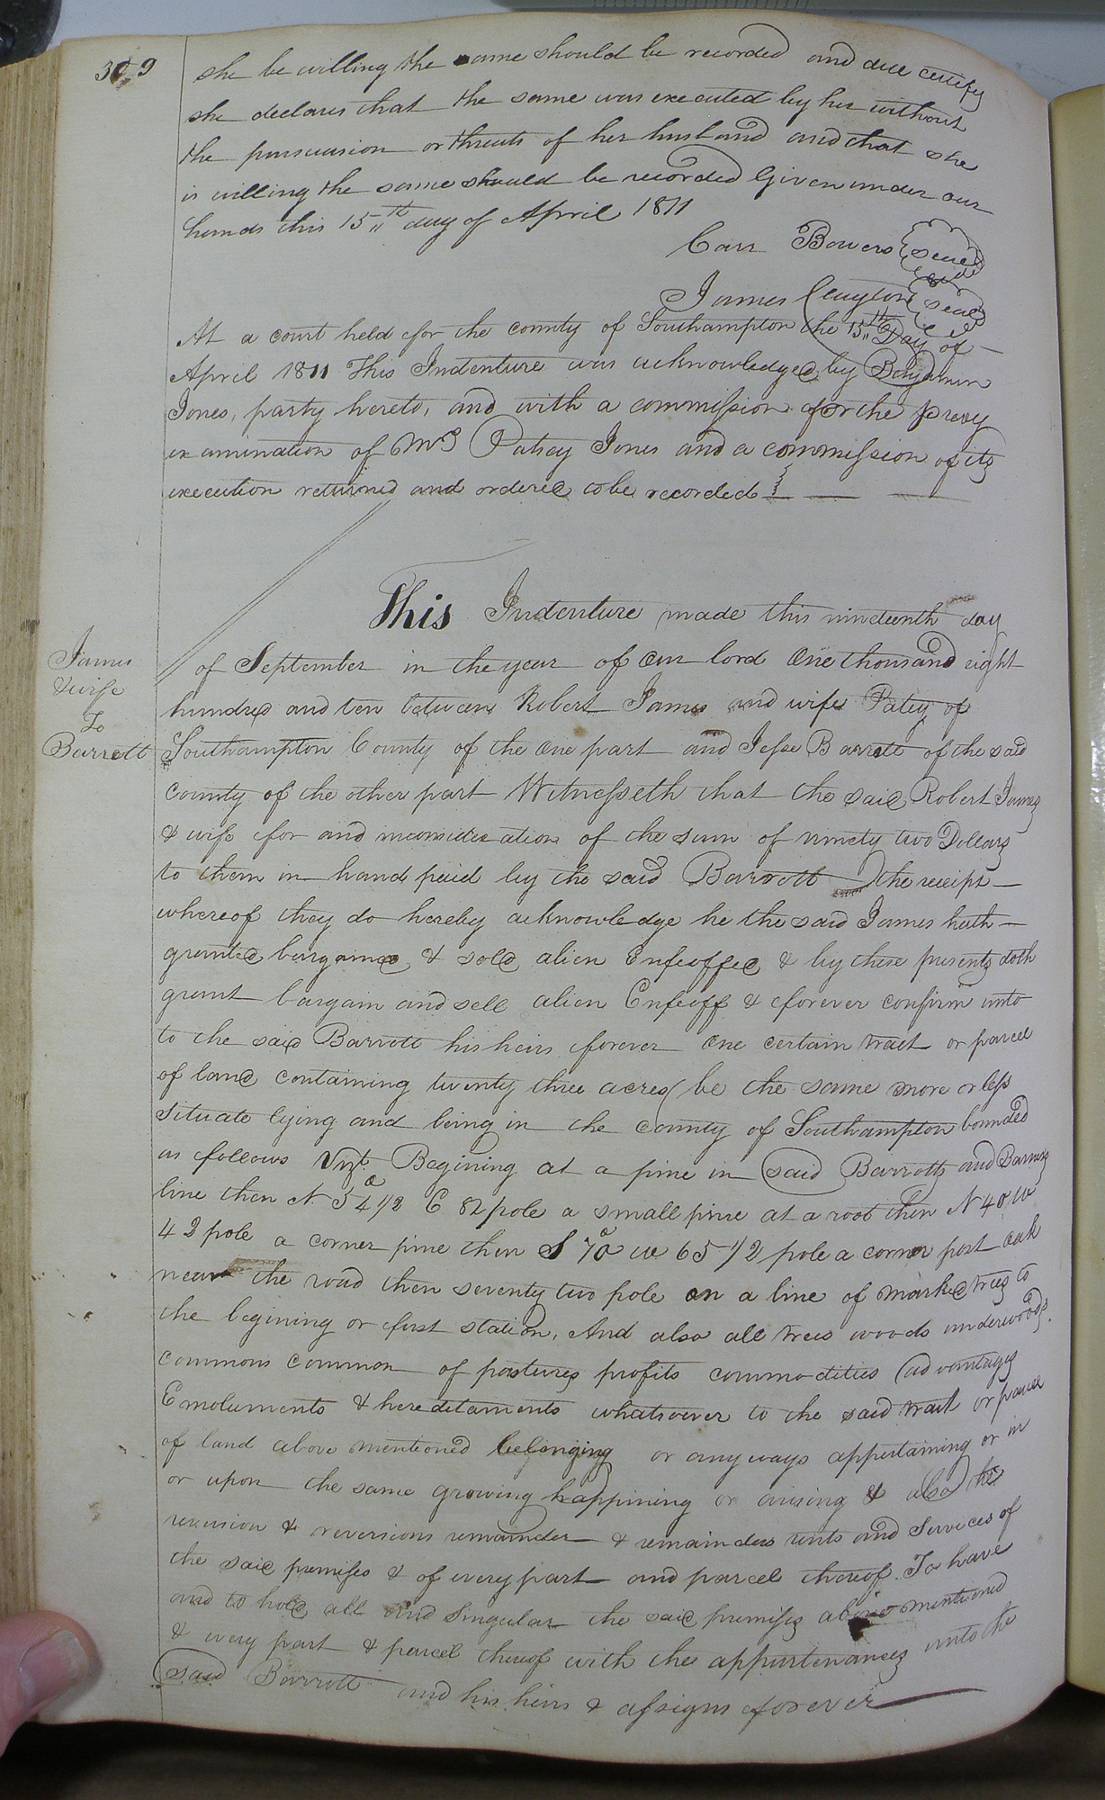 309
she be willing the same should be recorded and doe certify
she declares that the same was executed by her without
the pursuasion or threats of her husband and that she
is willing the same should be recorded Given under our
hands this 15th day of April 1811
Carr Bowers seal
James Clayton seal
At a court held for the county of Southampton the 15th Day of
April 1811 This Indenture was acknowledged by Benjamin
Jones, party hereto, and with a commission for the privy
examination of Mrs Patsey Jones and a commission of its
execution returned and ordered to be recorded
This Indenture made this ninteenth day
James
& wife
To
Barrett
of September in the year of our lord One thousand eight
hundred and ten between Robert James and wife Patey of
Southampton County of the one part and Jesse Barrett of the said
county of the other part Witnesseth that the said Robert James
& wife for and inconsideration of the sum of ninety two Dollars
to them in hand paid by the said Barrott the receipt
whereof they do hereby acknowledge he the said James hath
granted bargained & sold alien Enfeoffed & by these presents doth
grant bargain and sell alien Enfeoff & forever confirm unto
to the said Barrott his heirs forever One certain tract or parcel
of land containing twenty three acres (be the same more or less
situate lying and being in the county of Southampton bounded
as follows Vizt Begining at a pine in said Barrotts and Barnes
line then N 54 1/2 E 82 pole a small pine at a root then N 40 W
42 pole a corner pine then S 70 W 65 1/2 pole a corner post oak
near the road then seventy two pole on a line of marked trees to
the begining or first station, And also all trees woods underwoods.
commons common of pastures profits commodities advantages
Emoluments & hereditaments whatsoever to the said tract or parcel
of land above mentioned belonging or any ways appertaining or in
or upon the same growing happining or arising & also the
reversion & reversions remainder & remainders rents and Services of
the said premises & of every part and parcel thereof. To have
and to hold all and Singular the said premises above mentioned
& every part & parcel thereof with the appurtenances unto the
said Barrott and his heirs & assigns forever